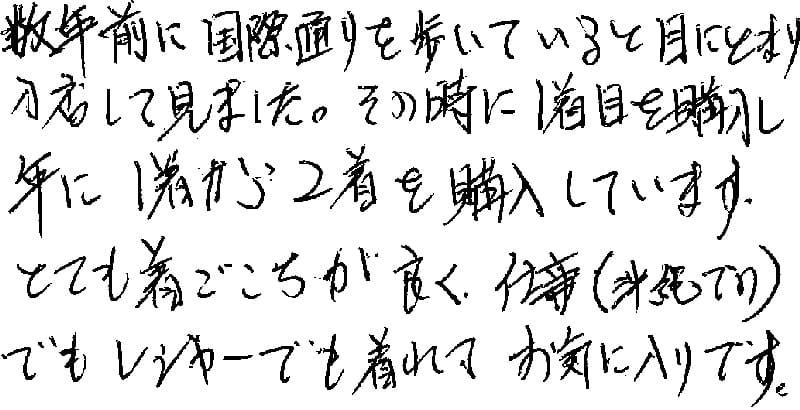 数年前に国際通りを歩いていると目にとまり
入店して見ました。その時に1着目を購入し
年に1着から2着を購入しています。
とても着ごこちが良く、仕事(沖縄での)
でもレジャーでも着れて お気に入りです。